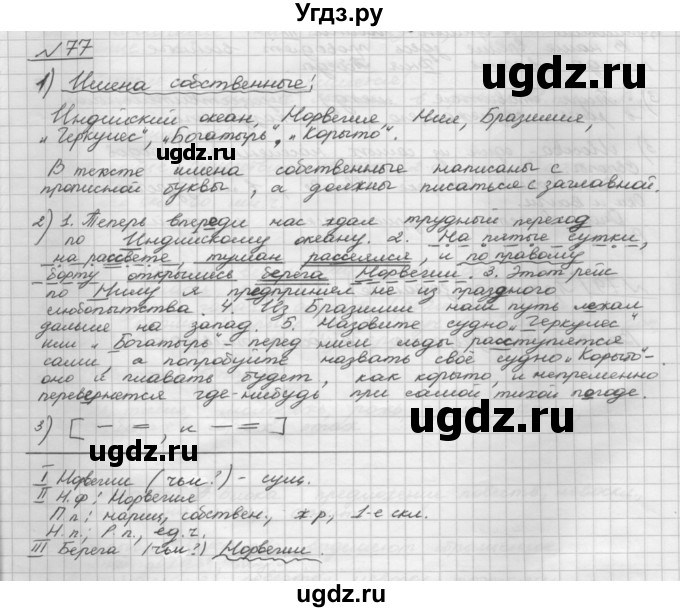 Угдз.ру
№77
1) Имена собственные:
Индийский океан, Норвегия, Нил, Бразилия,
„Геркулес“, „Богатырь“, „Корыто“.
В тексте имена собственные написаны с
прописной буквы, а должны писаться с заглавной.
2) 1. Теперь впереди нас ждал трудный переход
по Индийскому океану. 2. На пятые сутки,
на рассвете, туман рассеялся, и по правому
борту открылись берега Норвегии. 3. Этот рейс
по Нилу я предпринял не из праздного
любопытства. 4. Из Бразилии наш путь лежал
дальше на запад. 5. Назовите судно „Геркулес“
или „Богатырь“ - перед ним льды расступятся
сами, а попробуйте назвать своё судно „Корыто“-
оно и плавать будет, как корыто, и непременно
перевернется где-нибудь при самой тихой погоде.
3) [ — =, и — = ]
I Норвегии (чьи?) - сущ.
II Н.ф: Норвегия
П.п: нариц, собствен., ж.р, 1-е скл.
Н.п: Р.п, ед.ч.
III Берега (чьи?) Норвегии.
gdz.ru
gdz.ru
gdz.ru
gdz.ru
gdz.ru
gdz.ru
Угдз.ру